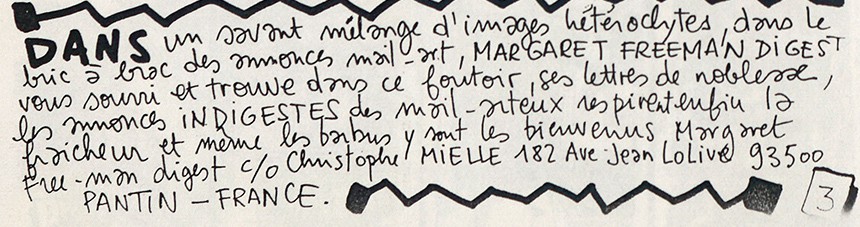 DANS un savant mélange d'images hétéroclytes, dans le
bric à brac des annonces mail-art, MARGARET FREEMAN DIGEST
vous souvri et trouve dans ce foutoir, ses lettres de noblesse,
les annonces INDIGESTES des mail-arteux respirent enfin la
fraîcheur et même les barbus y sont les bienvenus Margaret
Free-man digest c/o Christophe MIELLE 182 Ave Jean LoLive 93500
PANTIN - FRANCE.
3